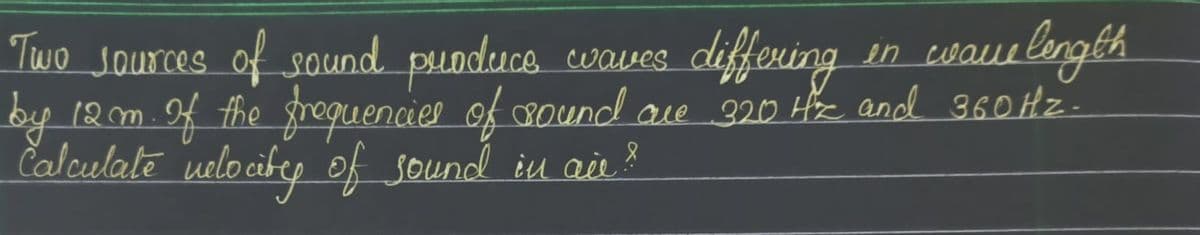 Two sources of sound produce waves differing in wavelength
by 12 m. If the frequencies of sound are 320 Hz and 360 Hz.
Calculate velocity of sound in air?